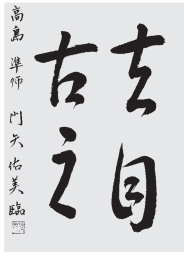 去自
古之
高島 準师 門矢佑美臨